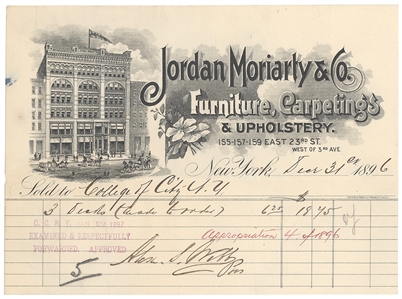 Jordan Moriarty & Co.
Furniture, Carpetings
& UPHOLSTERY.
155-157-159 EAST 23RD ST.
WEST OF 3RD AVE
New York, 31 1896
Sold to College of City N.Y.
$
3 Desks 6 25 18 75
C. C. N. Y. 1897
EXAMINED & RESPECTFULLY
FORWARDED, APPROVED
Appropriation 4 of 1896
5